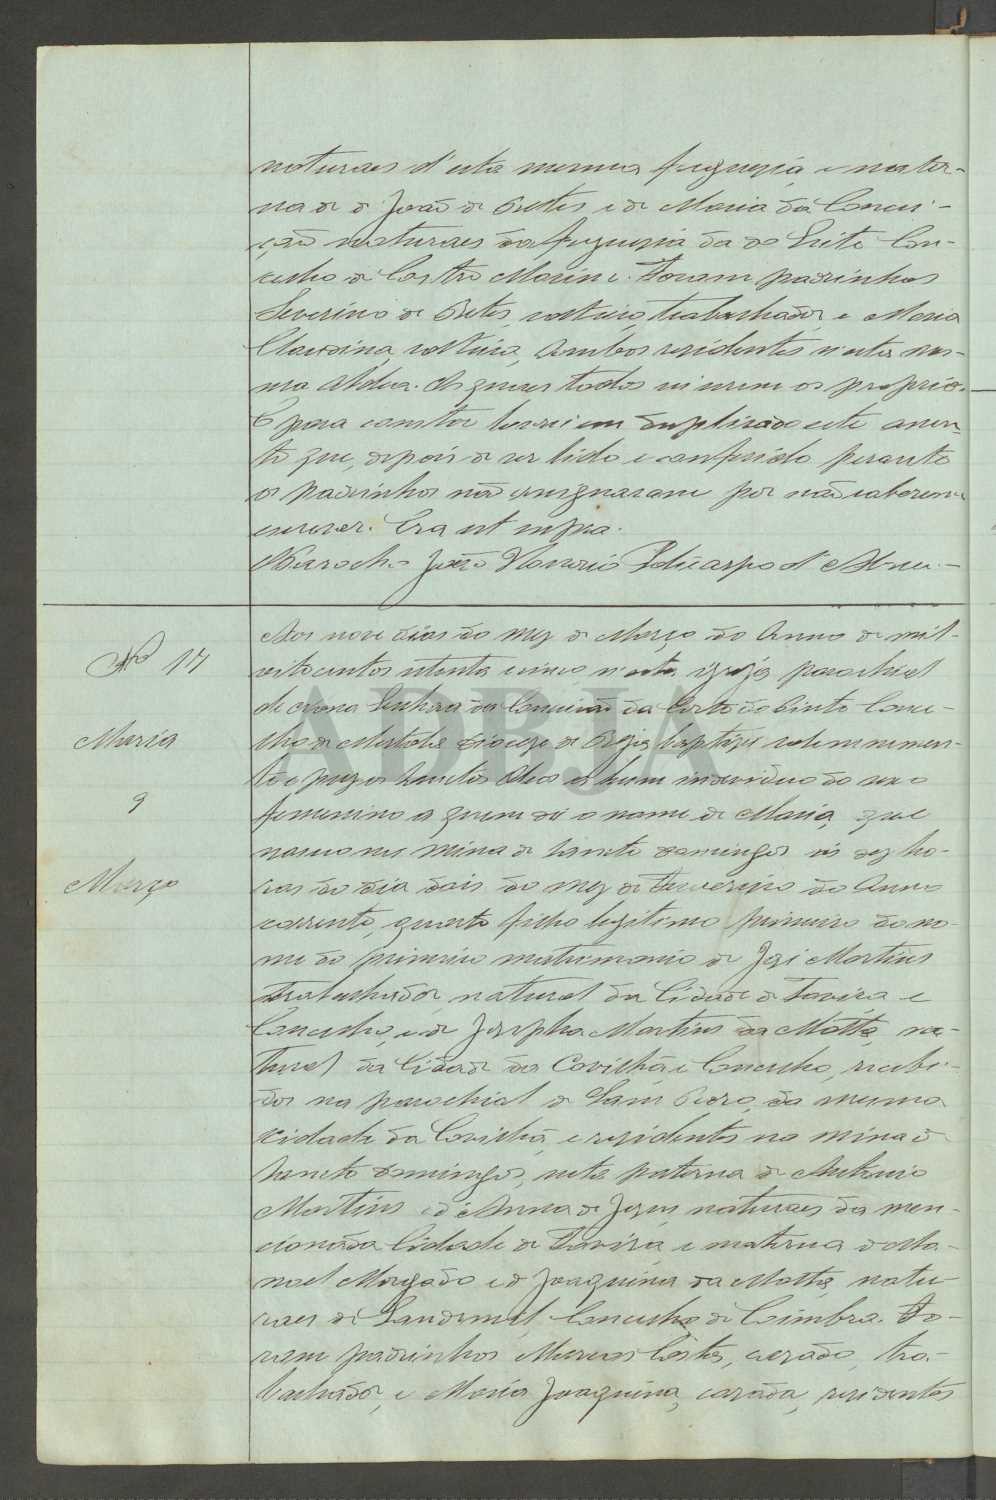 naturaes d'esta mesma freguezia, e mater-
na de João de Brites e de Maria da Concei-
ção naturaes da freguezia da do Leite Con-
celho de Castro Marim. Foram padrinhos
Severino de Brites, solteiro, trabalhador, e Maria
Claudina, solteira, ambos residentes n'esta mes-
ma Aldea. Os quaes todos serem os proprios.
E para constar lavrei em duplicado este assen-
to que, depois de ser lido e conferido perante
os padrinhos não assignaram por não saberem
escrever. Era ut supra.
O Parocho João Honorio Policarpo d'Abreu.
Nº 17
Maria
9
Março
Aos nove dias do mez de Março do Anno de mil-
oitocentos setenta e cinco n'esta igreja parochial
de Nossa Senhora da Conceição da Corte do Pinto Conce-
lho de Mertola Diocese de Beja, baptizei solemnemen-
te e puz os Sanctos Oleos a hum individuo do sexo
femenino a quem dei o nome de Maria, que
nasceo na Mina de Sancto Domingos ás dez ho-
ras do dia dois do mez de Fevereiro do Anno
corrente, quarto filho legitimo primeiro do no-
me do primeiro matrimonio de José Martins
Trabalhador, natural da Cidade de Tavira e
Concelho, e de Josepha Martins da Motta, na-
tural da Cidade da Covilhã, e Concelho, recebi-
dos na parochial de Sam Pedro, da mesma
cidade da Covilhã, e residentes na mina de
Sancto Domingos, neta paterna de Antonio
Martins e d'Anna de Jesus naturaes da men-
cionada Cidade de Tavira, e materna de Ma-
noel Morgado e de Joaquina da Motta, natu-
raes de Sandomil Concelho de Coimbra. Fo-
ram padrinhos Marcos Costa, cazado, tra-
balhador, e Maria Joaquina, cazada, residentes
ADBJA